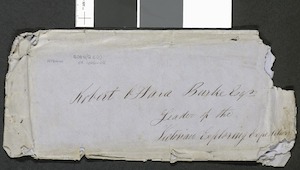 Robert O'Hara Burke Esqr
Leader of the
Victorian Exploring Expedition